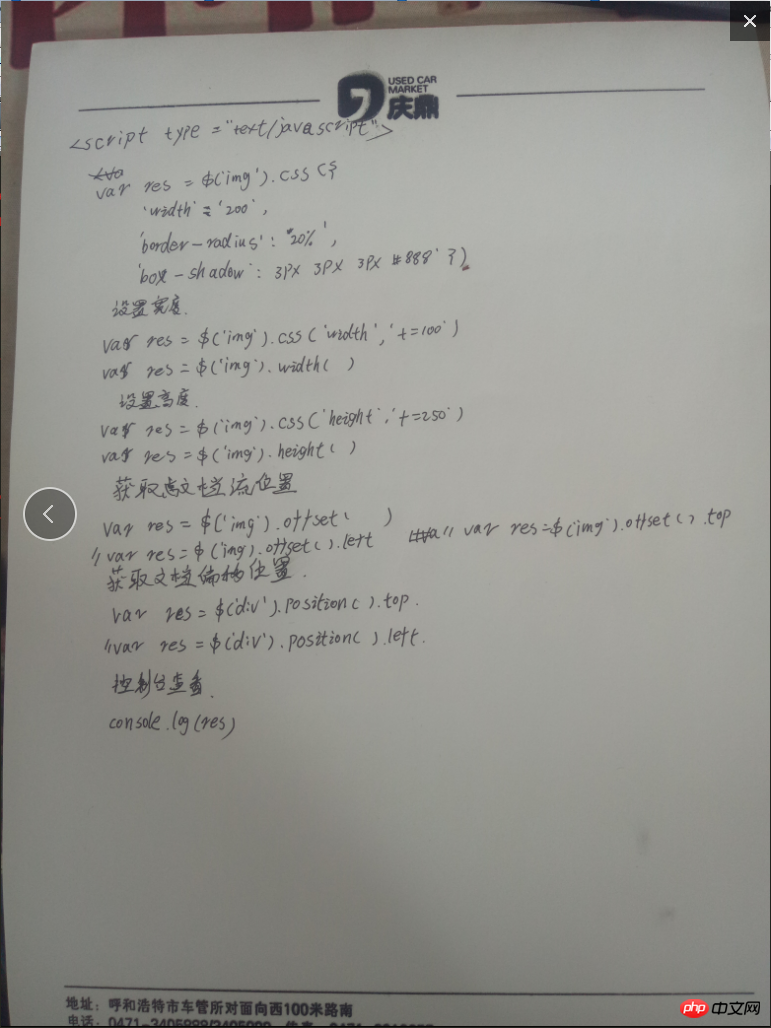 USED CAR
MARKET
庆鼎
<script type="text/javascript">
var res = $('img').css({
'width'='200',
'border-radius':'20%',
'box-shadow': 3px 3px 3px #888' })
设置宽度.
var res = $('img').css('width','+=100')
var res = $('img').width( )
设置高度.
var res = $('img').css('height','+=250')
var res = $('img').height( )
获取文档流位置
var res = $('img').offset( )
//var res = $('img').offset().left // var res=$(img').offset().top
获取文档偏移位置.
var res = $('div').position().top.
//var res = $('div').position().left.
控制台查看.
console.log(res)
地址：呼和浩特市车管所对面向西100米路南
电话：0471-
php 中文网